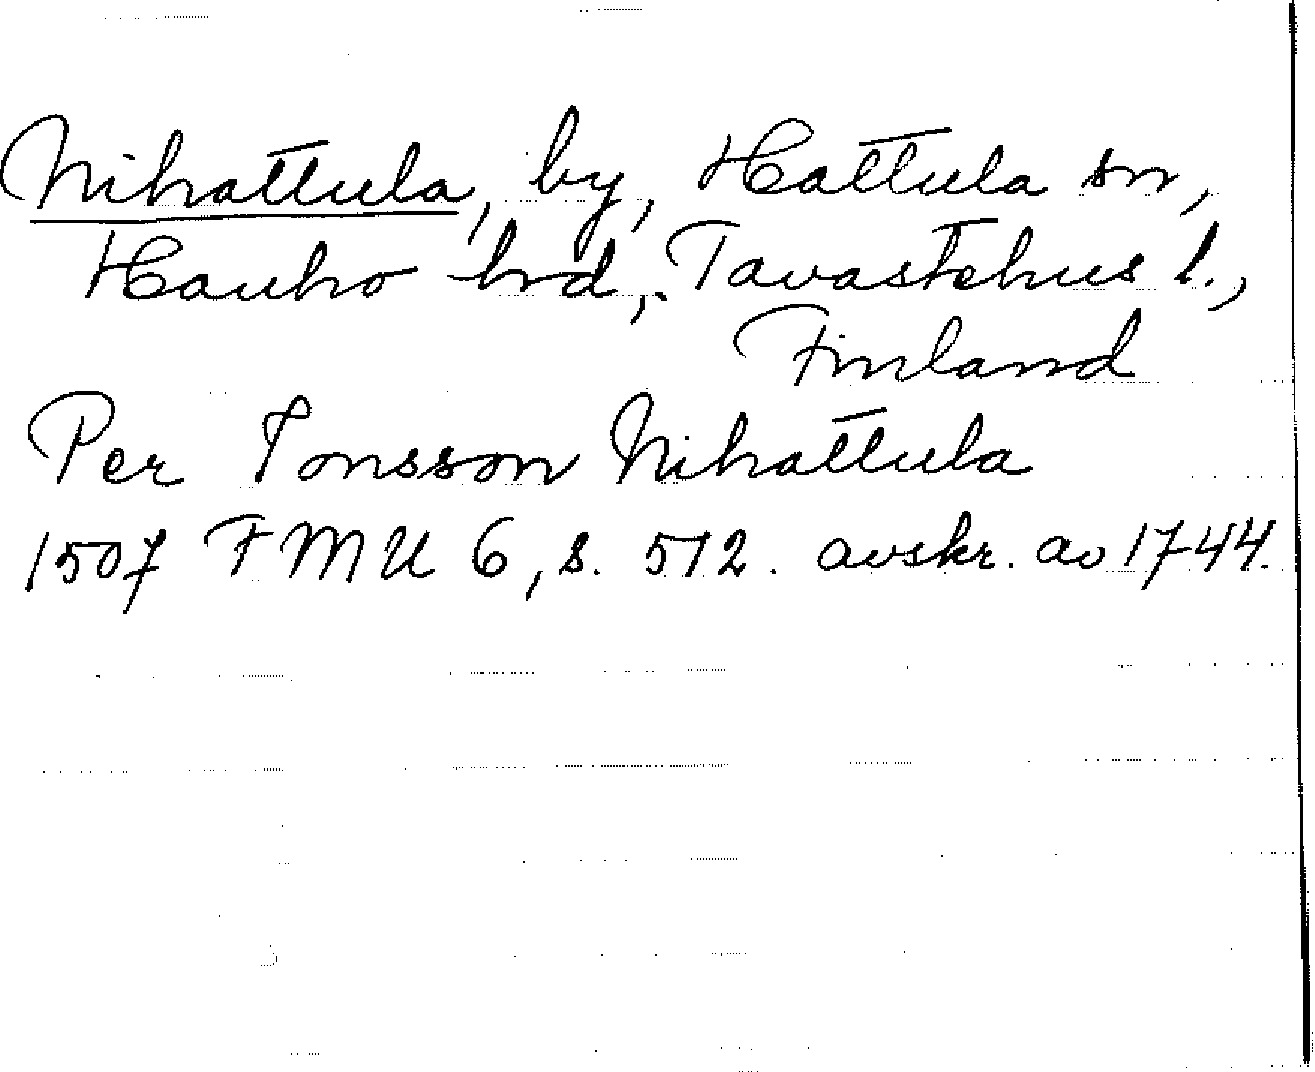 Nihattula, by, Hattula sn,
Hauho hrd, Tavastehus l.,
Finland
Per Jonsson Nihattula
1507 FMU 6, s. 512. avskr. av 1744.